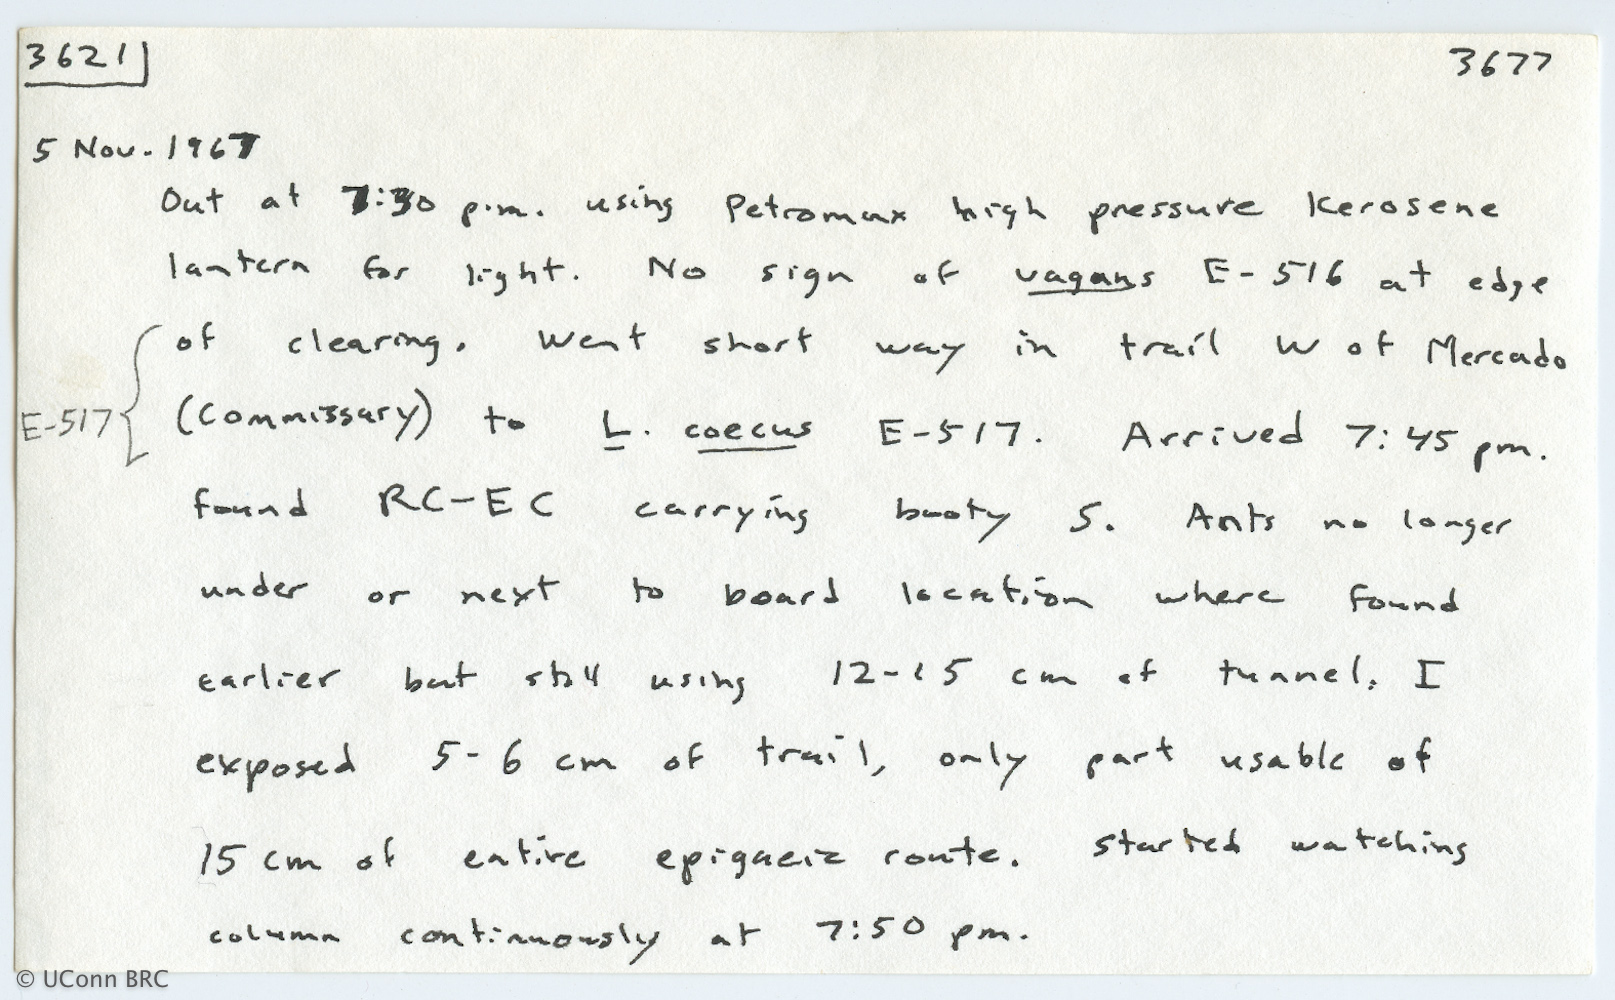 3621
3677
5 Nov. 1967
Out at 7:30 p.m. using Petromax high pressure kerosene
lantern for light. No sign of vagans E-516 at edge
of clearing. Went short way in trail W of Mercado
E-517 (Commissary) to L. coecus E-517. Arrived 7:45 pm.
found RC-EC carrying booty S. Ants no longer
under or next to board location where found
earlier but still using 12-15 cm of tunnel. I
exposed 5-6 cm of trail, only part usable of
15 cm of entire epigaeic route. Started watching
column continuously at 7:50 pm.
© UConn BRC